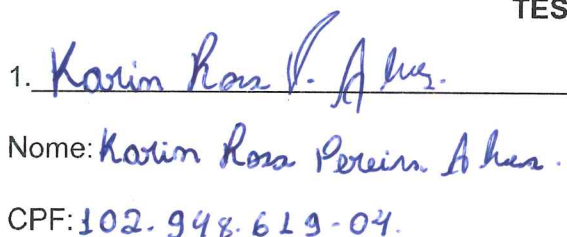 TES
1. Karin Rosa P. Alves.
Nome: Karin Rosa Pereira Alves.
CPF: 102.948.619-04.